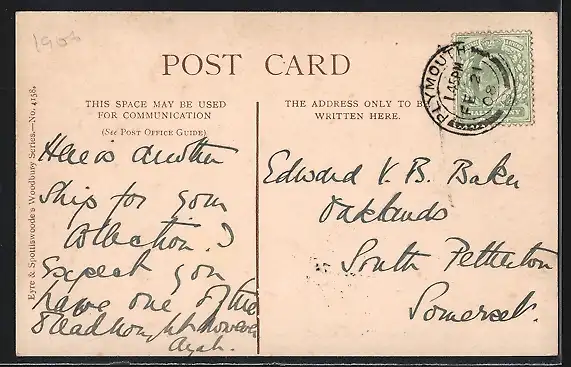 1908
POST CARD
THIS SPACE MAY BE USED
FOR COMMUNICATION
(See POST OFFICE GUIDE)
THE ADDRESS ONLY TO BE
WRITTEN HERE.
PLYMOUTH
1.45PM
FE 21
08
Eyre & Spottiswoode's Woodbury Series.—No. 4158.
Here is another
Ship for your
Collection. I
Expect you
have one of the
Dreadnought however
Edward V. B. Baker
Oaklands
South Petherton
Somerset.